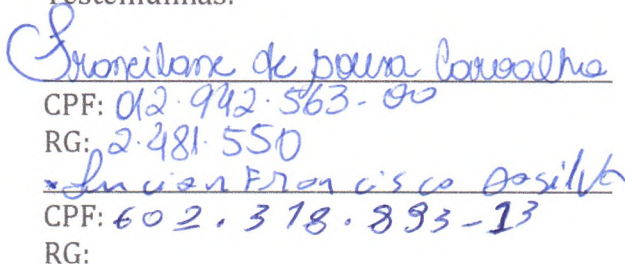 Testemunhas:
Francilane de Sousa Carvalho
CPF: 012.942.563-00
RG: 2.481.550
Lucian Francisco da silva
CPF: 602.378.893-13
RG: